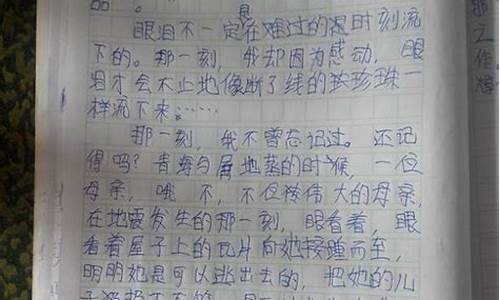 品。
眼泪不一定在难过的是时刻流
下的。那一刻，我却因为感动，眼
泪才会不止地像断了线的珍珠一
样流下来……
那一刻，我不曾忘记过。还记
得吗？青海
地
的时候，一位
母亲，哦 不，不但
伟大的母亲，
在地震发生的那一刻，眼看着，眼
看着屋子上的瓦片向她接踵而至，
明明她是可以逃出去的，把她的儿
子